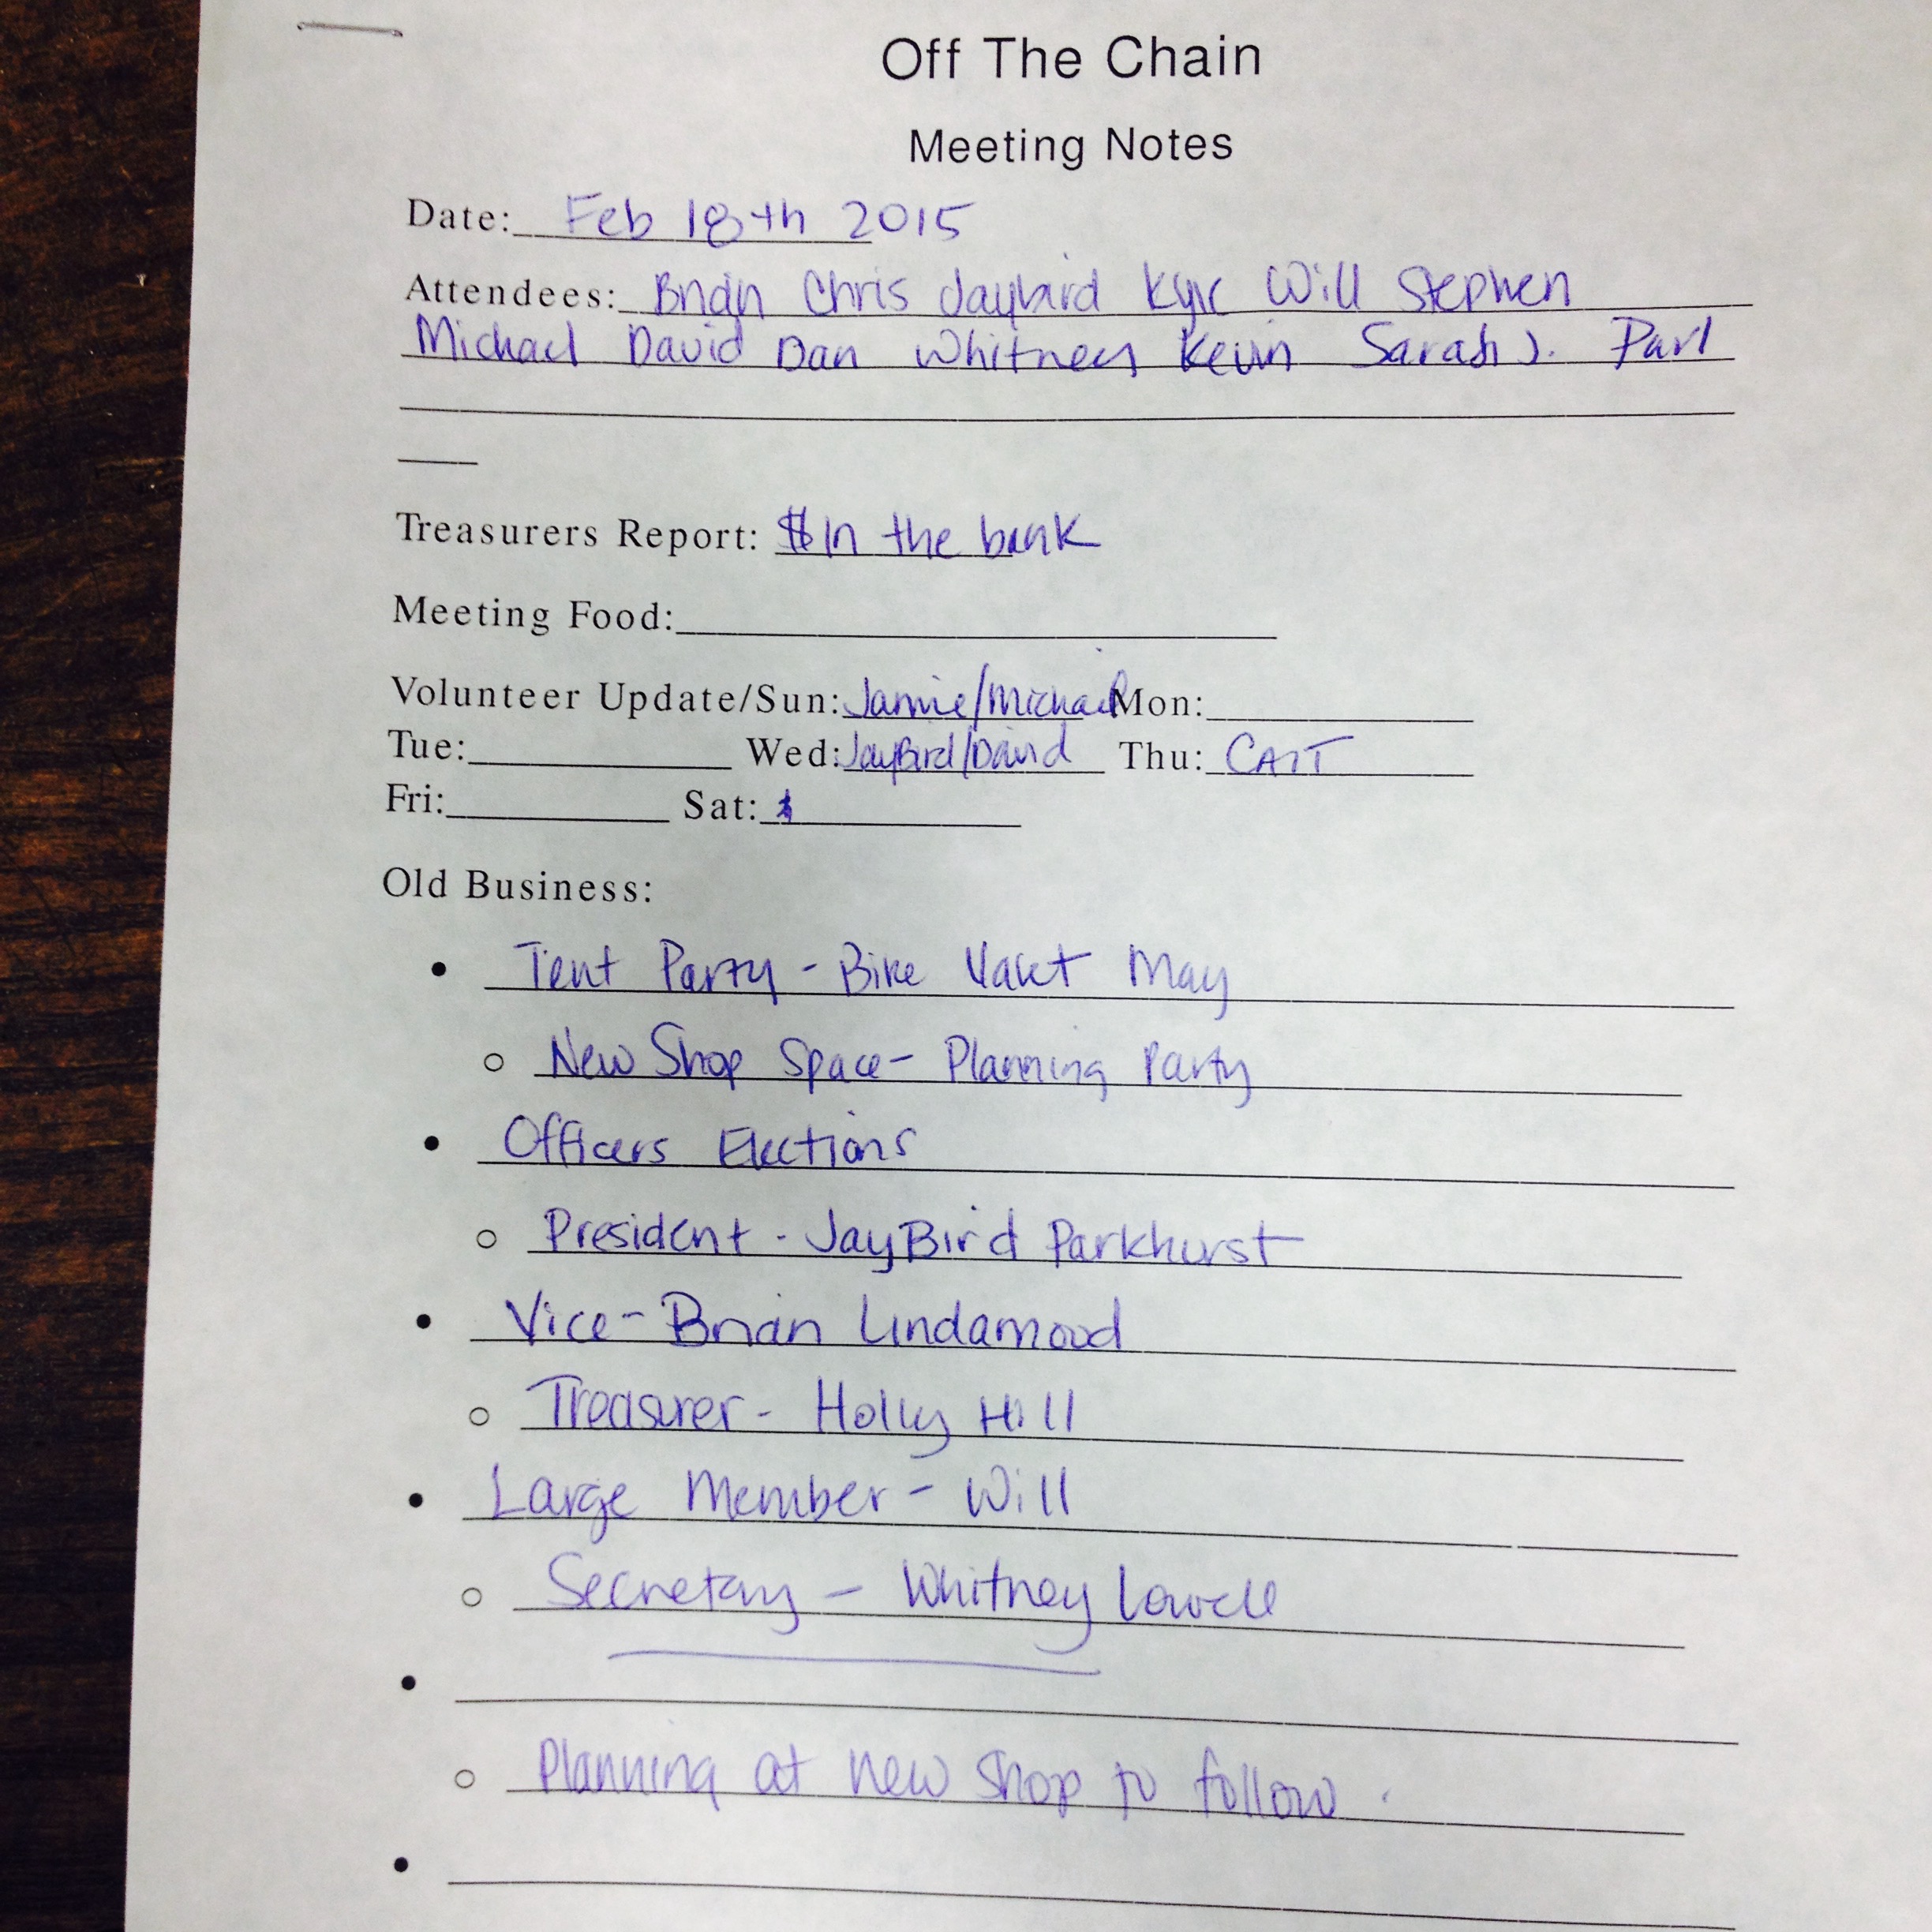 Off The Chain
Meeting Notes
Date: Feb 18th 2015
Attendees: Brian Chris Jaybird Kyle Will Stephen
Michael David Dan Whitney Kevin Sarah J.
Treasurers Report: $ In the bank
Meeting Food:
Volunteer Update/Sun: Jamie/Michael Mon:
Tue: Wed: JayBird/David Thu: CAIT
Fri: Sat:
Old Business:
Tent Party - Bike May
New Shop Space - Planning Party
Officers Elections
President - JayBird Parkhurst
Vice - Brian Lindamood
Treasurer - Holly Hill
Large Member - Will
Secretary - Whitney Lowell
Planning at new shop to follow.